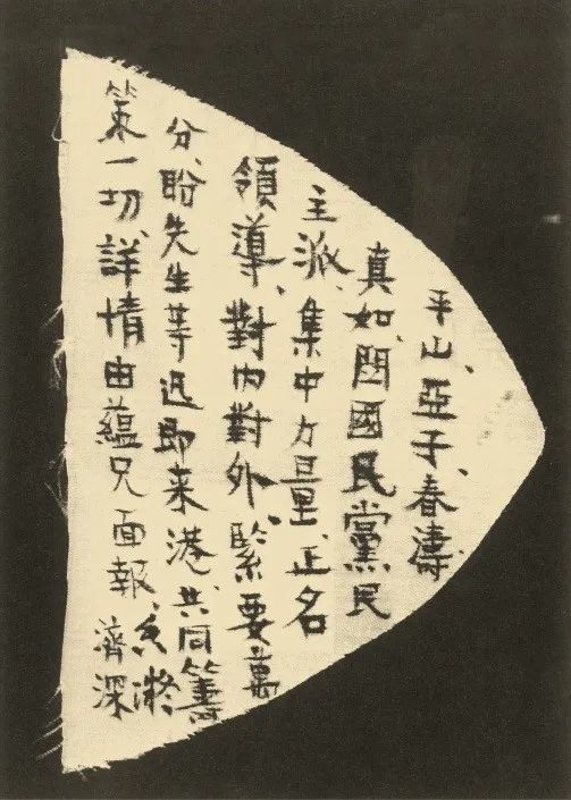 平山、亞子、春濤、
真如、國民黨民
主派、集中力量、正名
領導、對内對外、緊要萬
分、盼先生等迅即来港、共同籌
策、一切、詳情由蘊兄面報、
香凝
濟深